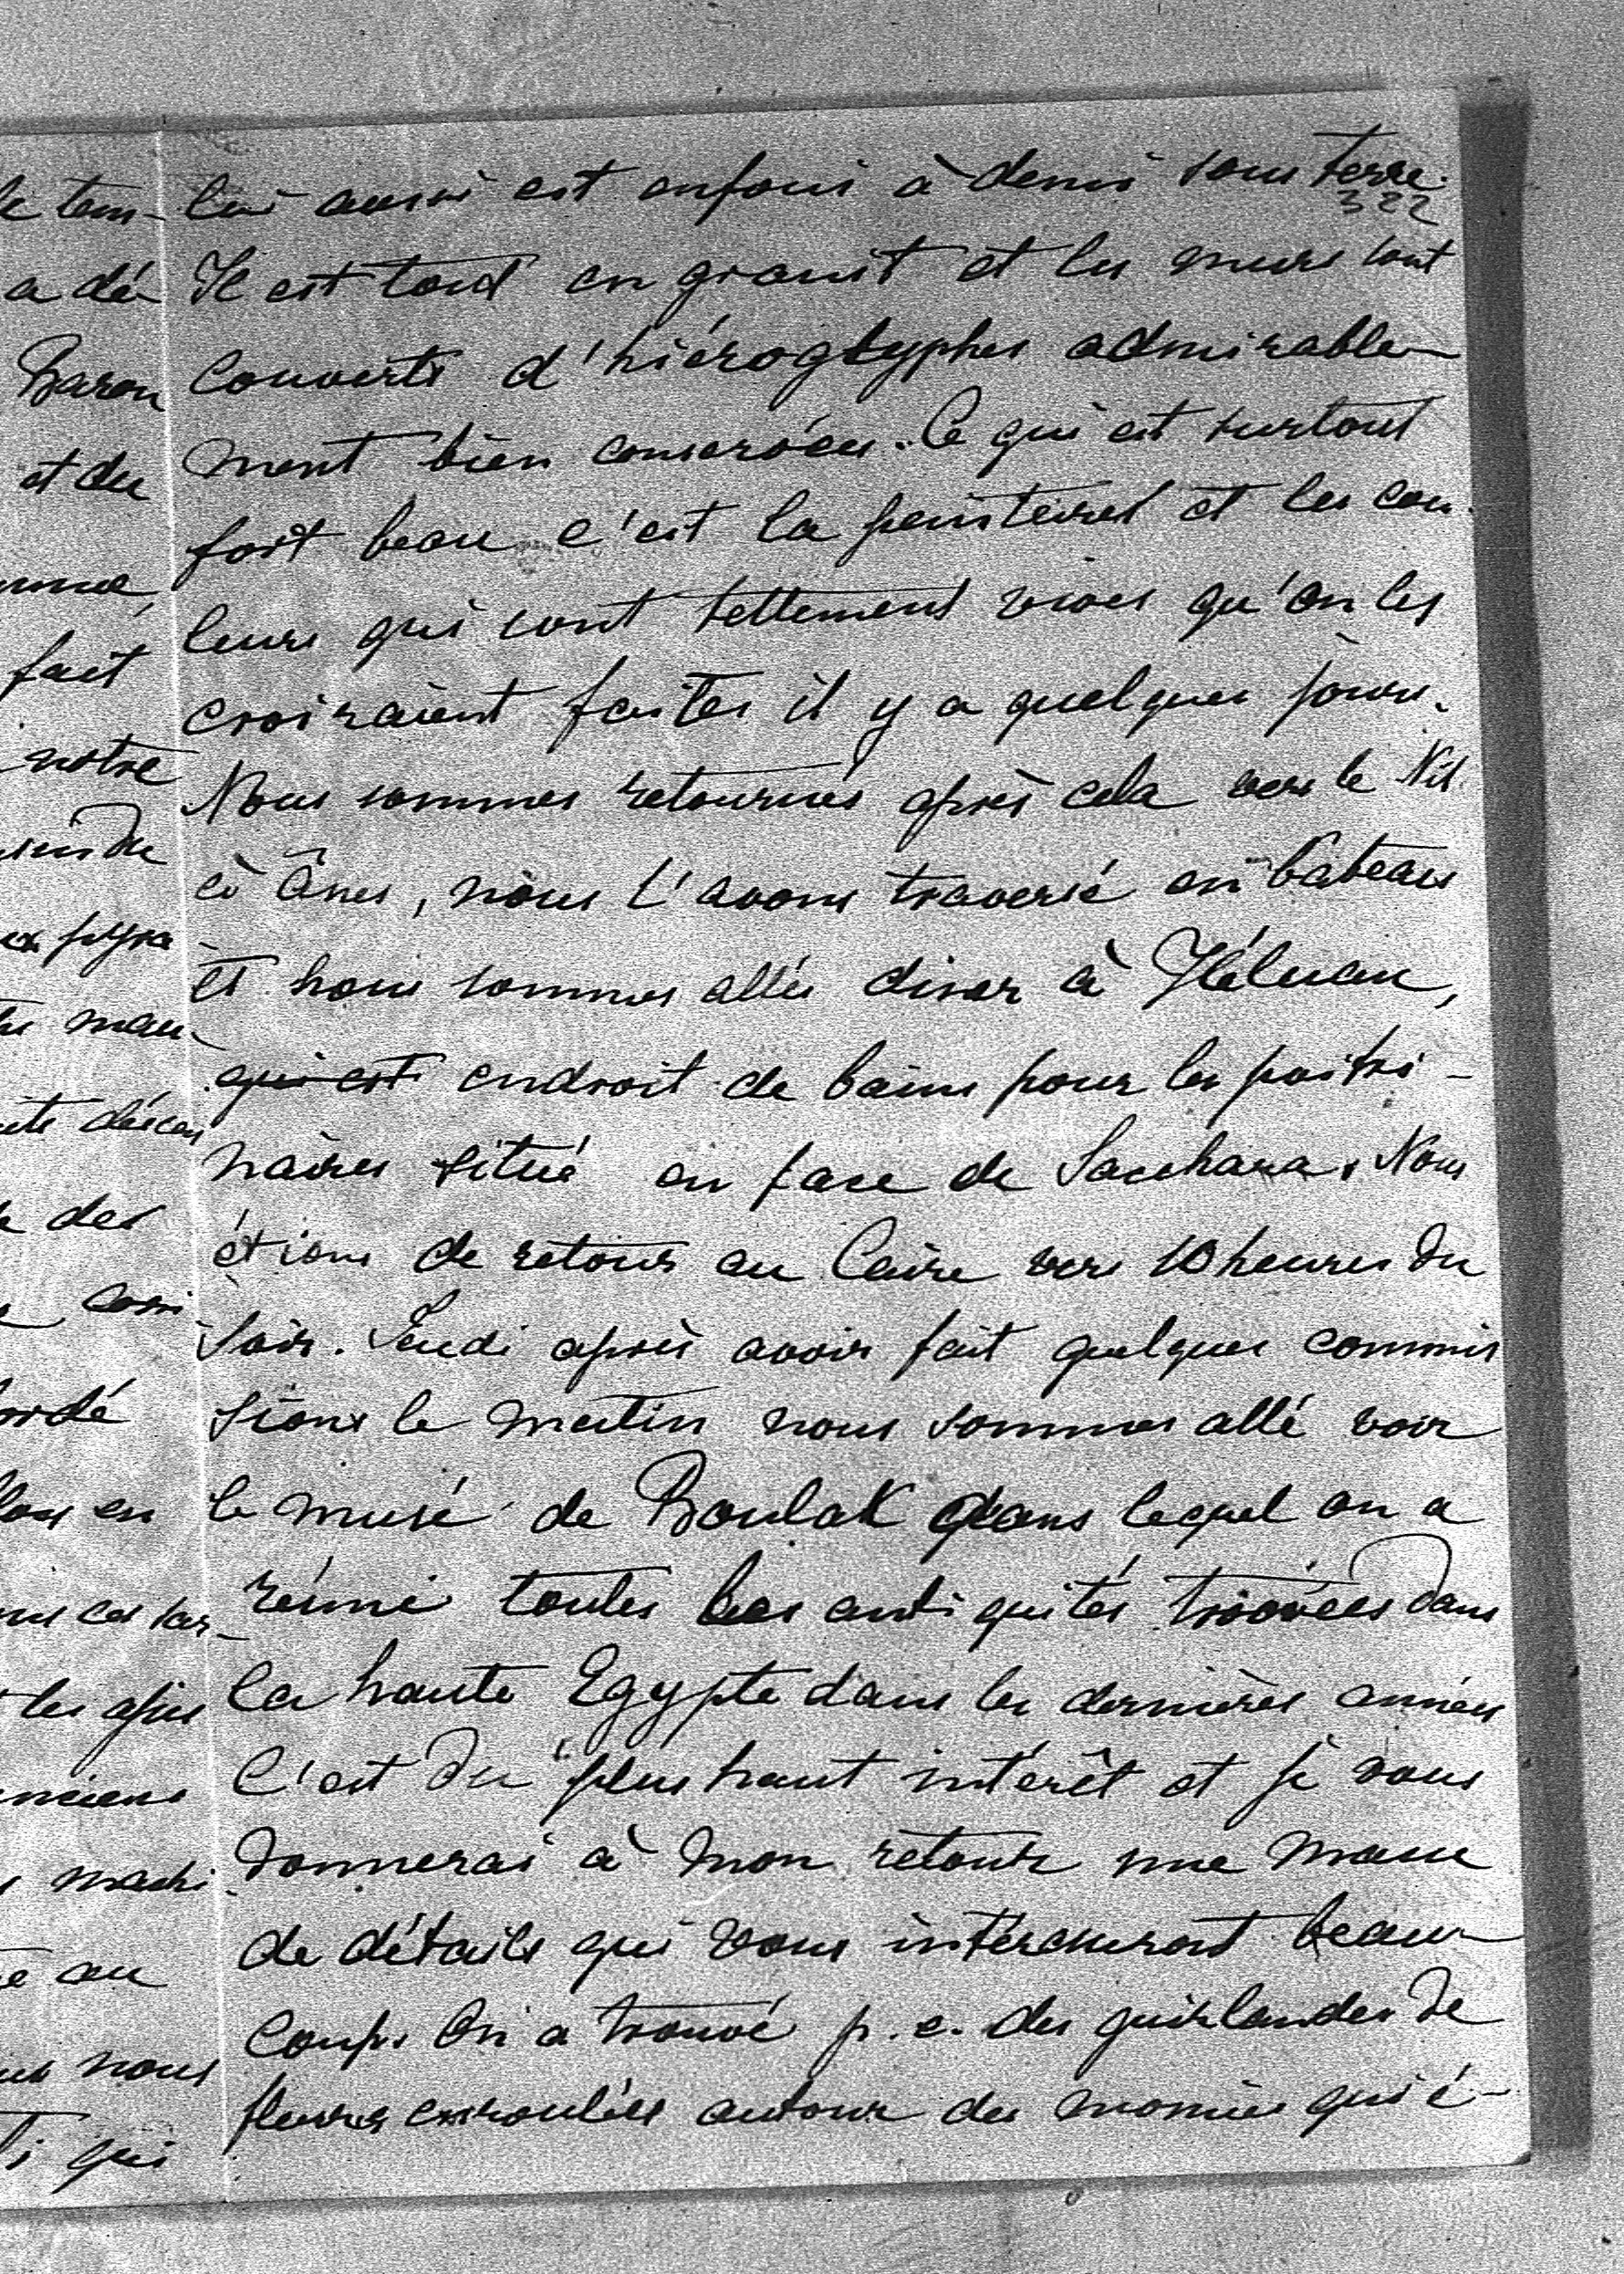 lui aussi est enfoui à demi sous terre.
322
Il est tout en granit et les murs sont
couverts d'hiéroglyphes admirable-
ment bien conservées. Ce qui est surtout
fort beau c'est la peinteires et les cou-
leurs qui sont tellement vives qu'on les
croiraient faites il y a quelques jours.
Nous sommes retournés après cela vers le Nil
à ânes, nous l'avons traversé en bateau
et nous sommes allés diner à Héluan,
qui est endroit de bains pour les poitri-
naires situé en face de Sacchara. Nous
étions de retour au Caire vers 10 heures du
soir. Jeudi après avoir fait quelques commis
sions le matin nous sommes allé voir
le musé de Boulak dans lequel on a
réuni toutes les antiquités trouvées dans
la haute Egypte dans les dernières années
C'est du plus haut intérêt et je vous
donnerai à mon retour une masse
de détails qui vous intéresseront beau-
coup. On a trouvé p. e. des guirlandes de
fleurs enroulées autour des momies qui é-
le tem-
a dé
Baron
et des
fait
notre
pyra
des
en
les
anciens
au
nous
qui